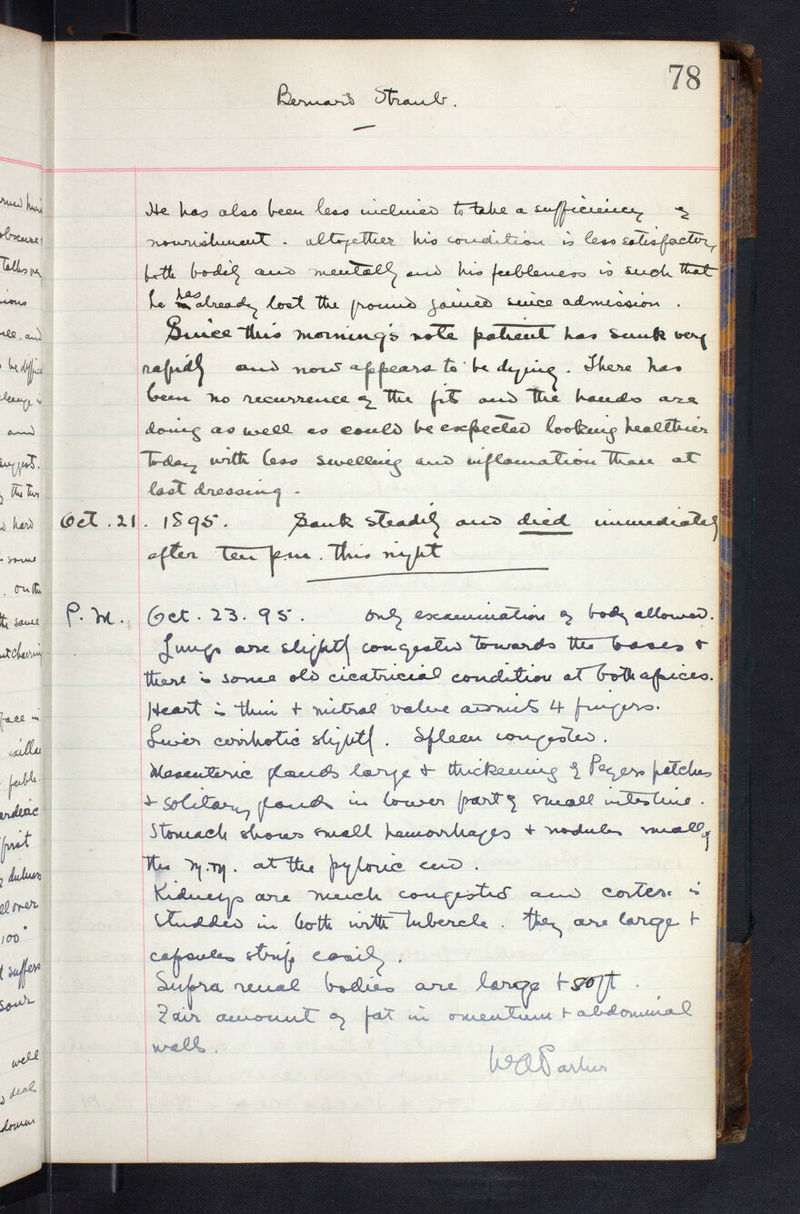 78
Bernard Straub.
He has also been less inclined to take a sufficiency of
nourishment. altogether his condition is less satisfactory,
both bodily and mentally and his feebleness is such that
he has already lost the ground gained since admission.
Since this morning's note patient has sunk very
rapidly and now appears to be dying. There has
been no recurrence of the fit and the hands are
doing as well as could be expected looking healthier
today with less swelling and inflamation than at
last dressing.
Oct. 21. 1895. Sank steadily and died immediately
after ten p.m. this night
P.M. Oct. 23. 95. Only examination of body allowed.
Lungs are slightly congested towards the bases +
there is some old cicatricial condition at both apices.
Heart is thin + mitral valve admits 4 fingers.
Liver cirrhotic slightly. Spleen congested.
Mesenteric glands large + thickening of Peyers patches
+ solitary glands in lower part of small intestine.
Stomach shows small hemorrhages + nodules
the M.M. at the pyloric end.
Kidneys are much congested and cortex is
studded in both with tubercle. they are large +
capsules strip easily.
Supra renal bodies are large + soft.
Fair amount of fat in omentum + abdominal
walls.
W A Parker